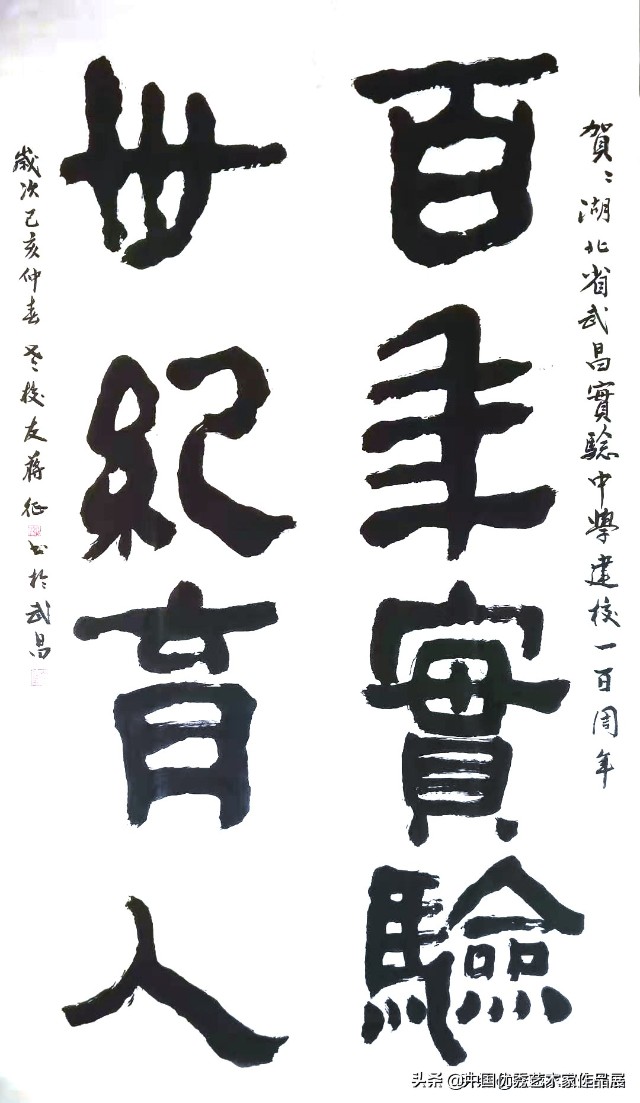 賀〻湖北省武昌實驗中學建校一百周年
百年實驗
世紀育人
歲次己亥仲春老校友蔣征书於武昌
头条 @中国优秀艺术家作品展